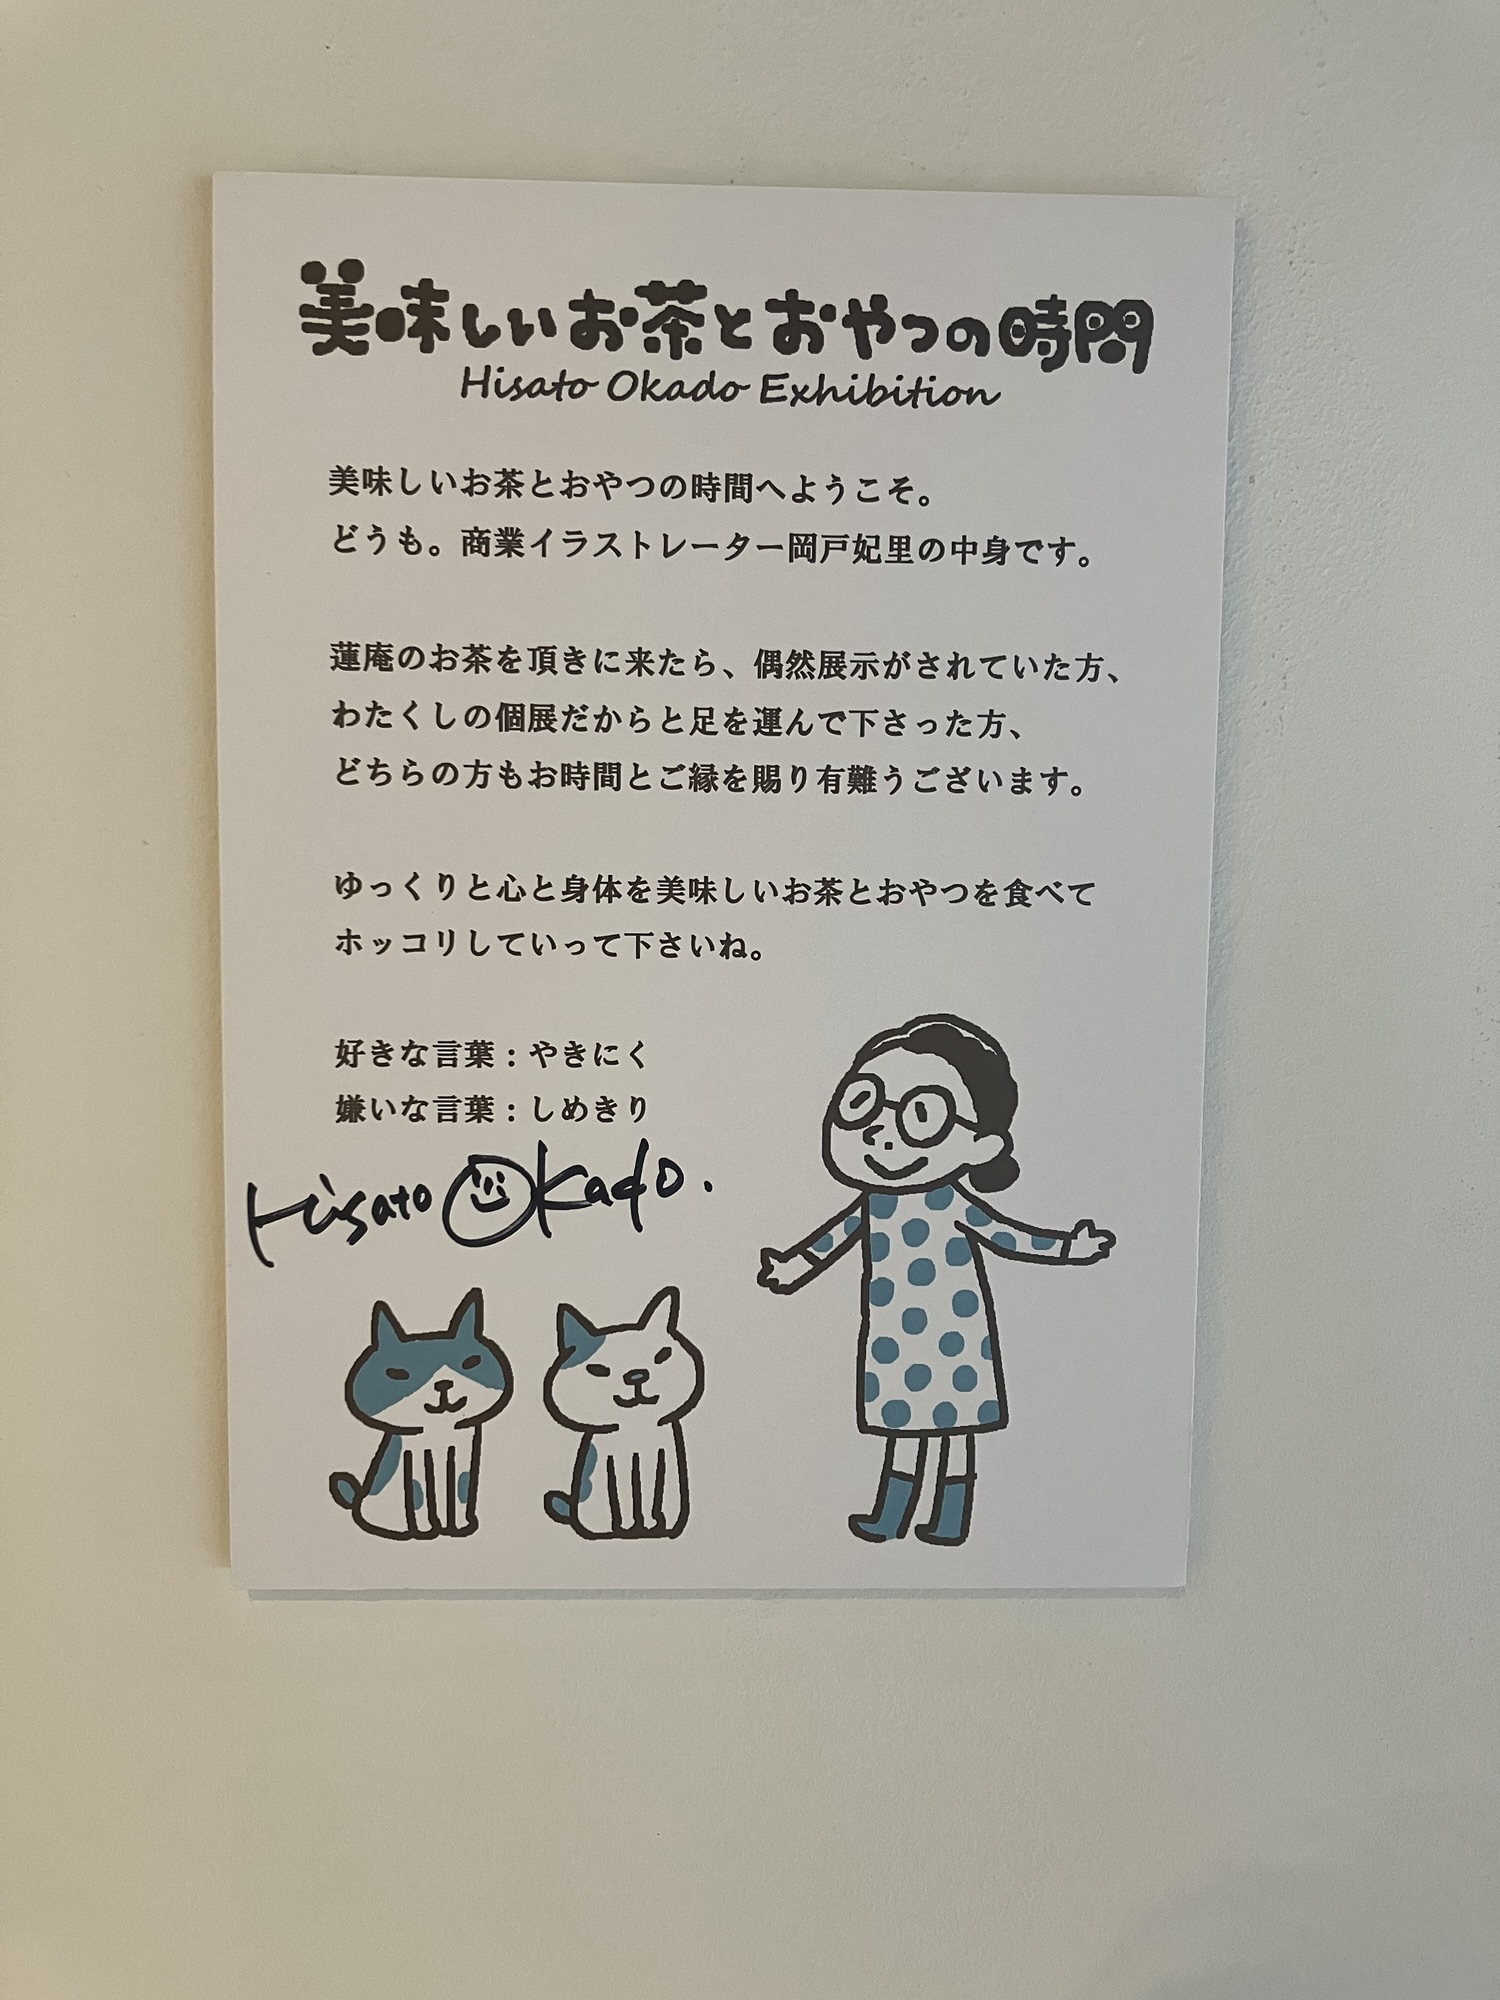 美味しいお茶とおやつの時間
Hisato Okado Exhibition
美味しいお茶とおやつの時間へようこそ。
どうも。商業イラストレーター岡戸妃里の中身です。
蓮庵のお茶を頂きに来たら、偶然展示がされていた方、
わたくしの個展だからと足を運んで下さった方、
どちらの方もお時間とご縁を賜り有難うございます。
ゆっくりと心と身体を美味しいお茶とおやつを食べて
ホッコリしていって下さいね。
好きな言葉：やきにく
嫌いな言葉：しめきり
Hisato Okado.